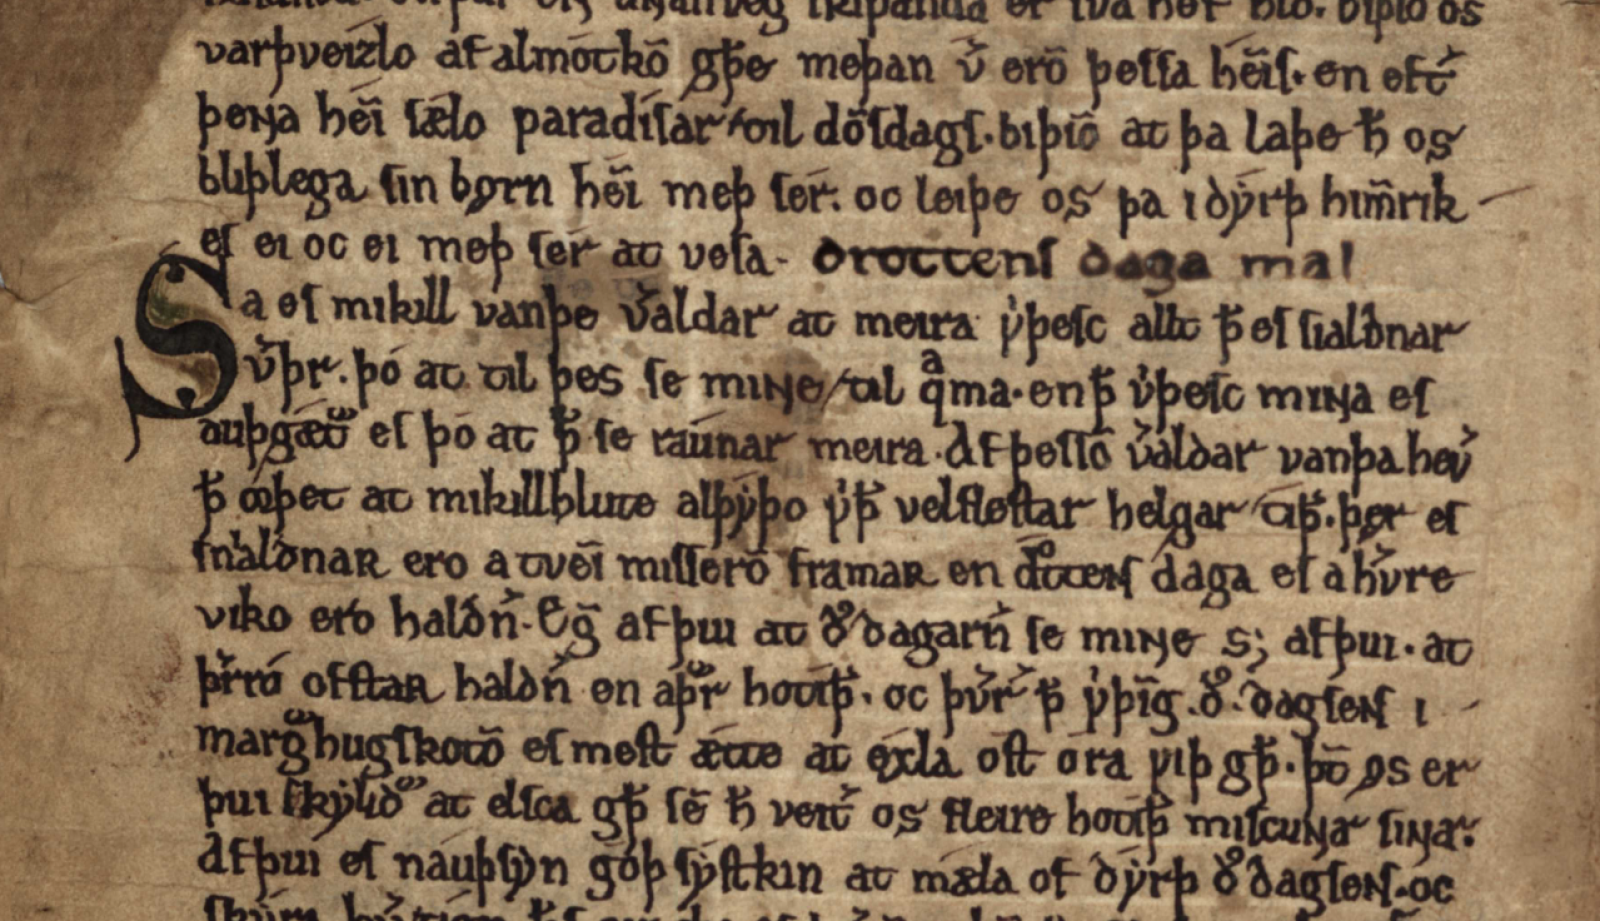 varþveizlo af almótkō gþ̄e meþan v̓ erō þessa hēis. en eft̓
þeɴa hēi sǽlo paradísar til dōsdags. biþiō at þa laþe ħ os
bliþlega sin bǫrn hēi meþ sér. oc leiþe os þa i dýrþ him̄rik
es ei oc ei meþ sér at vesa. drottens daga mal
Sa es mikill vanþe v̓aldar at meira v̓þesc allt þ̄ es sialdnar
v̓þr. þó at til þes se miɴe til qᵃma. en þ̄ v̓þesc miɴa es
auþgǽt es þó at þ̄ se raúnar meira. Af þessō v̓aldar vanþa hev̓
þ̄ orþet at mikill hlute alþýþo v̓þ̄ velflestar helgar tiþ̄. þǫr es
sialdnaʀ ero a tvēi misserō framaʀ en dͦtteɴs daga es a hv̓re
viko ero haldn̓. Eḡ af þui at dͦ dagarn̓ se miɴe s; af þui. at
þr̓ró ofstaʀ haldn̓ en aþr̄ hotiþ̄. oc þv̓r þ̄ v̓þīg. dͦ. dagseɴs i
marḡ hugskotō es mest ǽtte at ęxla ǫst óra viþ gþ̄. þt̄ ǫs er
þui skýlid at elsca gþ̄ sē ħ veit̓ os fleire hotiþ̄ miscuɴar siɴar.
Af þui es náuþsýn góþ sýstkin at mǽla of dýrþ dͦ dagseɴs. oc